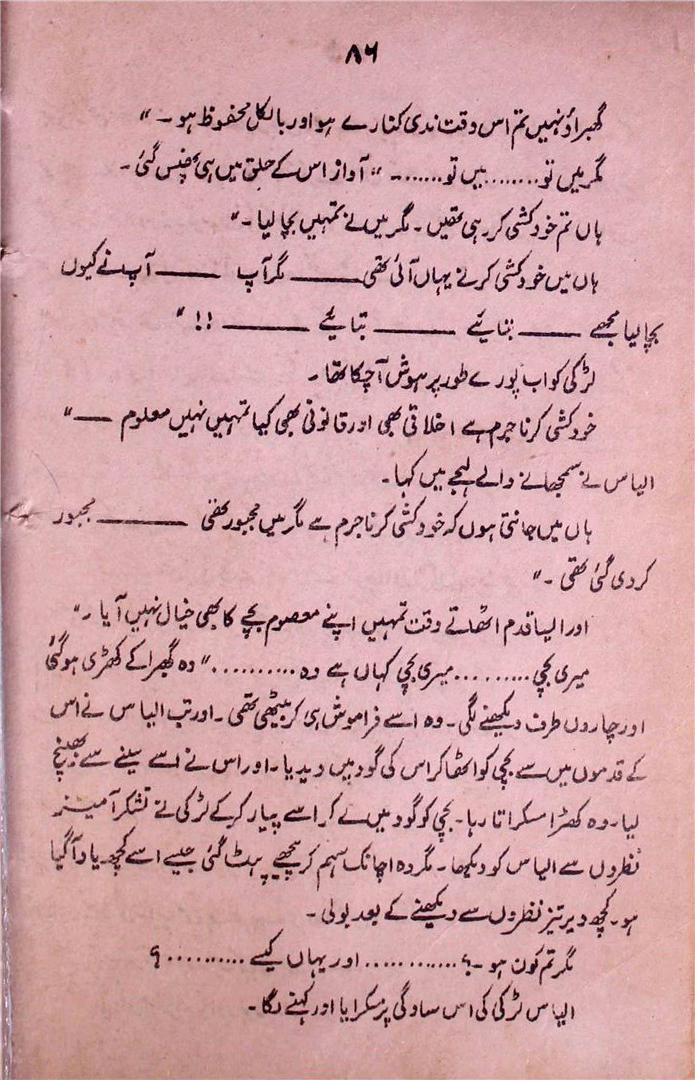 ۸۶
گھبراؤ نہیں تم اس وقت ندی کنارے ہو اور بالکل محفوظ ہو ۔ "
مگر میں تو ........ میں تو ...... ۔ " آواز اس کے حلق میں ہی پھنس گئی ۔
ہاں تم خودکشی کر رہی تھیں ۔ مگر میں نے تمہیں بچا لیا ۔ "
ہاں میں خودکشی کرنے یہاں آئی تھی ــــــــ مگر آپ ــــــــ آپ نے کیوں
بچا لیا مجھے ــــــــ بتائیے ــــــــ بتائیے ــــــــ !! "
لڑکی کو اب پورے طور پر ہوش آ چکا تھا ۔
خودکشی کرنا جرم ہے اخلاقی بھی اور قانونی بھی کیا تمہیں نہیں معلوم ـــــ "
الیاس نے سمجھانے والے لہجے میں کہا ۔
ہاں میں جانتی ہوں کہ خودکشی کرنا جرم ہے مگر میں مجبور تھی ــــــــ مجبور
کر دی گئی تھی ۔ "
اور ایسا قدم اٹھاتے وقت تمہیں اپنے معصوم بچے کا بھی خیال نہیں آیا ۔ "
میری بچی ......... میری بچی کہاں ہے وہ .......... " وہ گھبرا کے کھڑی ہو گئی
اور چاروں طرف دیکھنے لگی ۔ وہ اسے فراموش ہی کر بیٹھی تھی ۔ اور تب الیاس نے اس
کے قدموں میں سے بچی کو اٹھا کر اس کی گود میں دیدیا ۔ اور اس نے اسے سینے سے بھینچ
لیا ۔ وہ کھڑا مسکراتا رہا ۔ بچی کو گود میں لے کر اسے پیار کر کے لڑکی نے تشکر آمیز
نظروں سے الیاس کو دیکھا ۔ مگر وہ اچانک سہم کر پیچھے ہٹ گئی جیسے اسے کچھ یاد آ گیا
ہو ۔ کچھ دیر تیز نظروں سے دیکھنے کے بعد بولی ۔
مگر تم کون ہو ۔ ؟ ........... اور یہاں کیسے .......... ؟
الیاس لڑکی کی اس سادگی پر مسکرایا اور کہنے لگا ۔